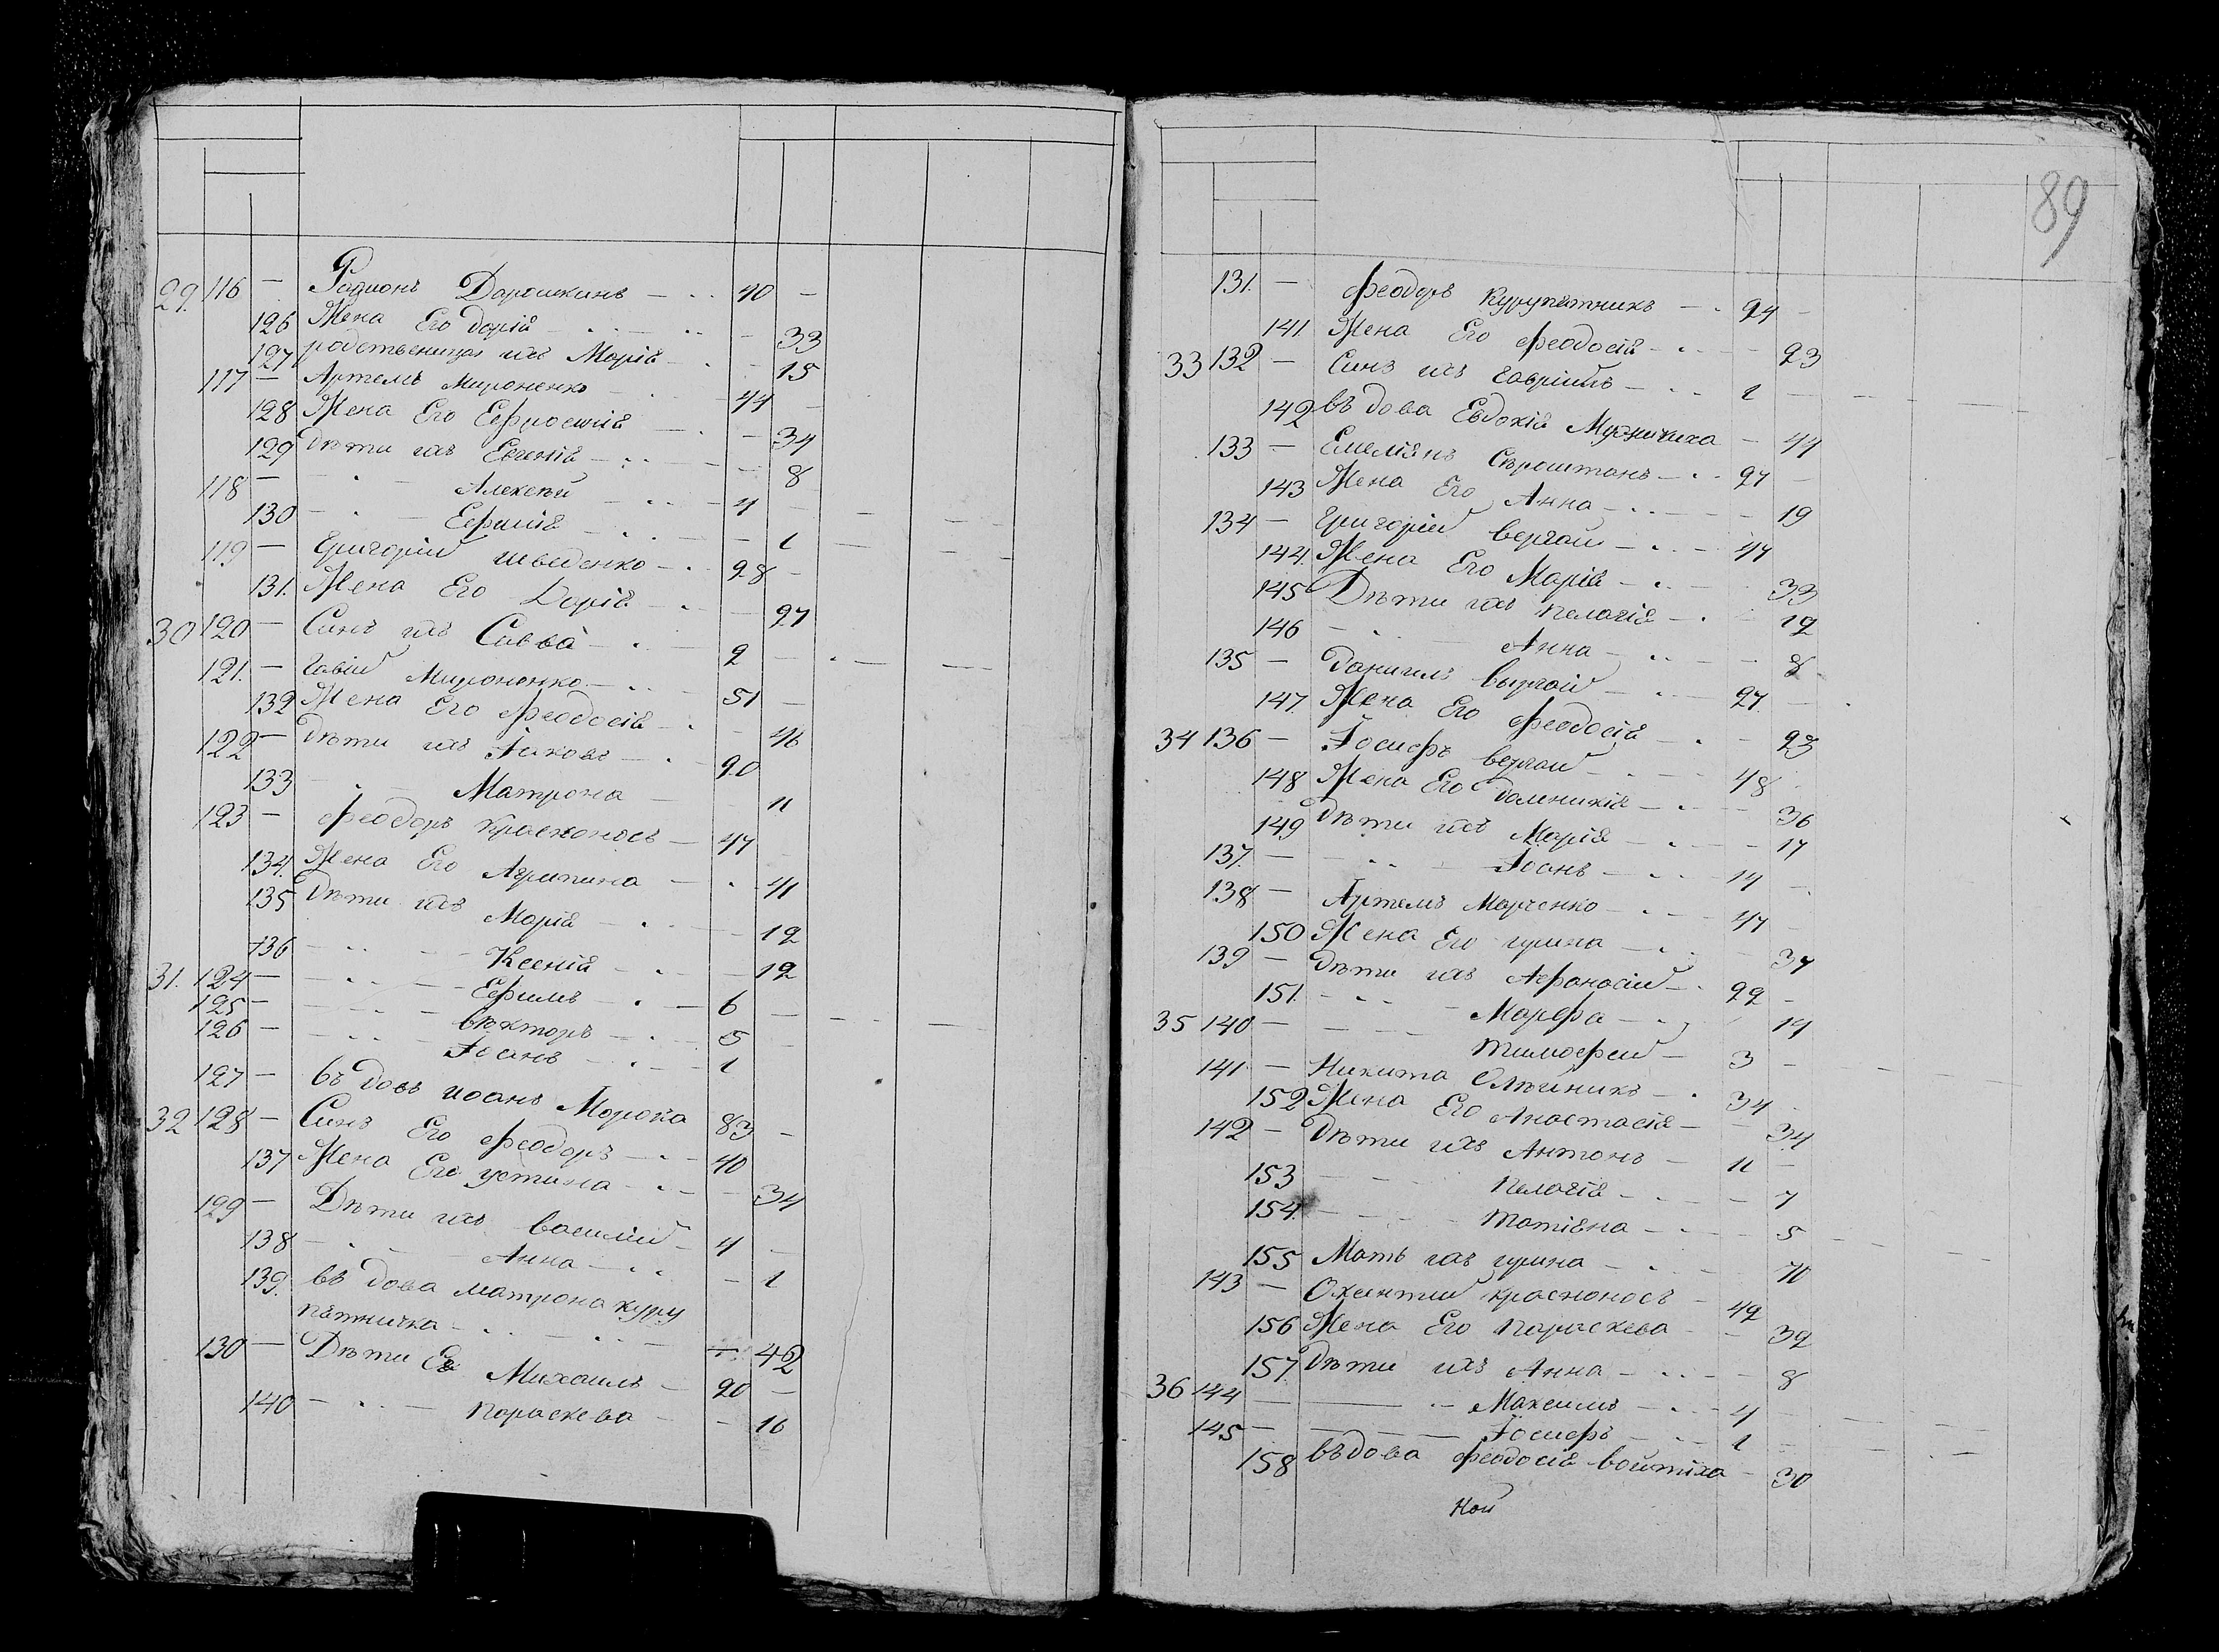 29. 116 — Родионъ Дорошкинъ — 40 —
126 Жена Его дорія — 33
127 родственица ихъ Марія — 15
117 — Артемъ Мироненко — 44 —
128 Жена Его Ефросинія — 34
129 Дѣти ихъ Евгенія — 8
118 — Алексѣй — 4 —
130 — Ефимія — 1
119 — Григорій шведенко — 28 —
131. Жена Его Дарія — 27
30 120 — Синъ ихъ Савва — 2 —
121. — Гавіи Мироненко — 51 —
132 Жена Его Феодосія — 46
122 — Дѣти ихъ Іаковъ — 20
133 — Матрона — 11
123 — Феодоръ Красноносъ — 47
134. Жена Его Агрипина — 41
135 Дѣти ихъ Марія — 12
136 — Ксенія — 12
31. 124 — Ефимъ — 6 —
125 — вѣкторъ — 5 —
126 — Іоанъ — 1
127 — въ довъ иоанъ Морока 83 —
32 128 — Синъ Его Феодоръ — 40
137 Жена Его устина — 34
129 — Дѣти ихъ василій — 4 —
138 — Анна — 1
139. въ дова матрона куру
пѣтничка — 42
130 — Дѣти Ея Михаилъ — 20 —
140 — параскева — 16
89
131. — Феодоръ Курупѣтникъ — 24 —
141 Жена Его Феодосія — 23
33 132 — Синъ ихъ гавріилъ — 1 —
142 въ дова Евдокія — 44
133 — Емеліянъ Сѣроштанъ — 27 —
143 Жена Его Анна — 19
134 — Григорій вергай — 47
144. Жена Его Марія — 33
145 Дѣти ихъ пелагія — 12
146 — Анна — 8
135 — Даниилъ выргай — 27. —
147 Жена Его Феодосія — 23
34 136 — Іосифъ вергай — 48
148 Жена Его домникія — 36
149 Дѣти ихъ Марія — 17
137. — Іоанъ — 14 —
138 — Артемъ Марченко — 47 —
150 Жена Его ирина — 37
139 — Дѣти ихъ Афонасій — 22 —
151. — Марфа — 14
35 140 — тимофей — 3 —
141 — Никита Олѣйникъ — 34
152 Жена Его Анастасія — 34
142 — Дѣти ихъ Антонъ — 11 —
153 — пелагія — 7
154. — татіяна — 5
155 Мать ихъ ирина — 70
143 — Оксентий красноносъ — 49
156 Жена Его параскева — 39
157 Дѣти ихъ Анна — 8
36 144 — Максимъ — 4 —
145 — Іосифъ — 1 —
158 въдова феодосія войтіха — 30
Ной